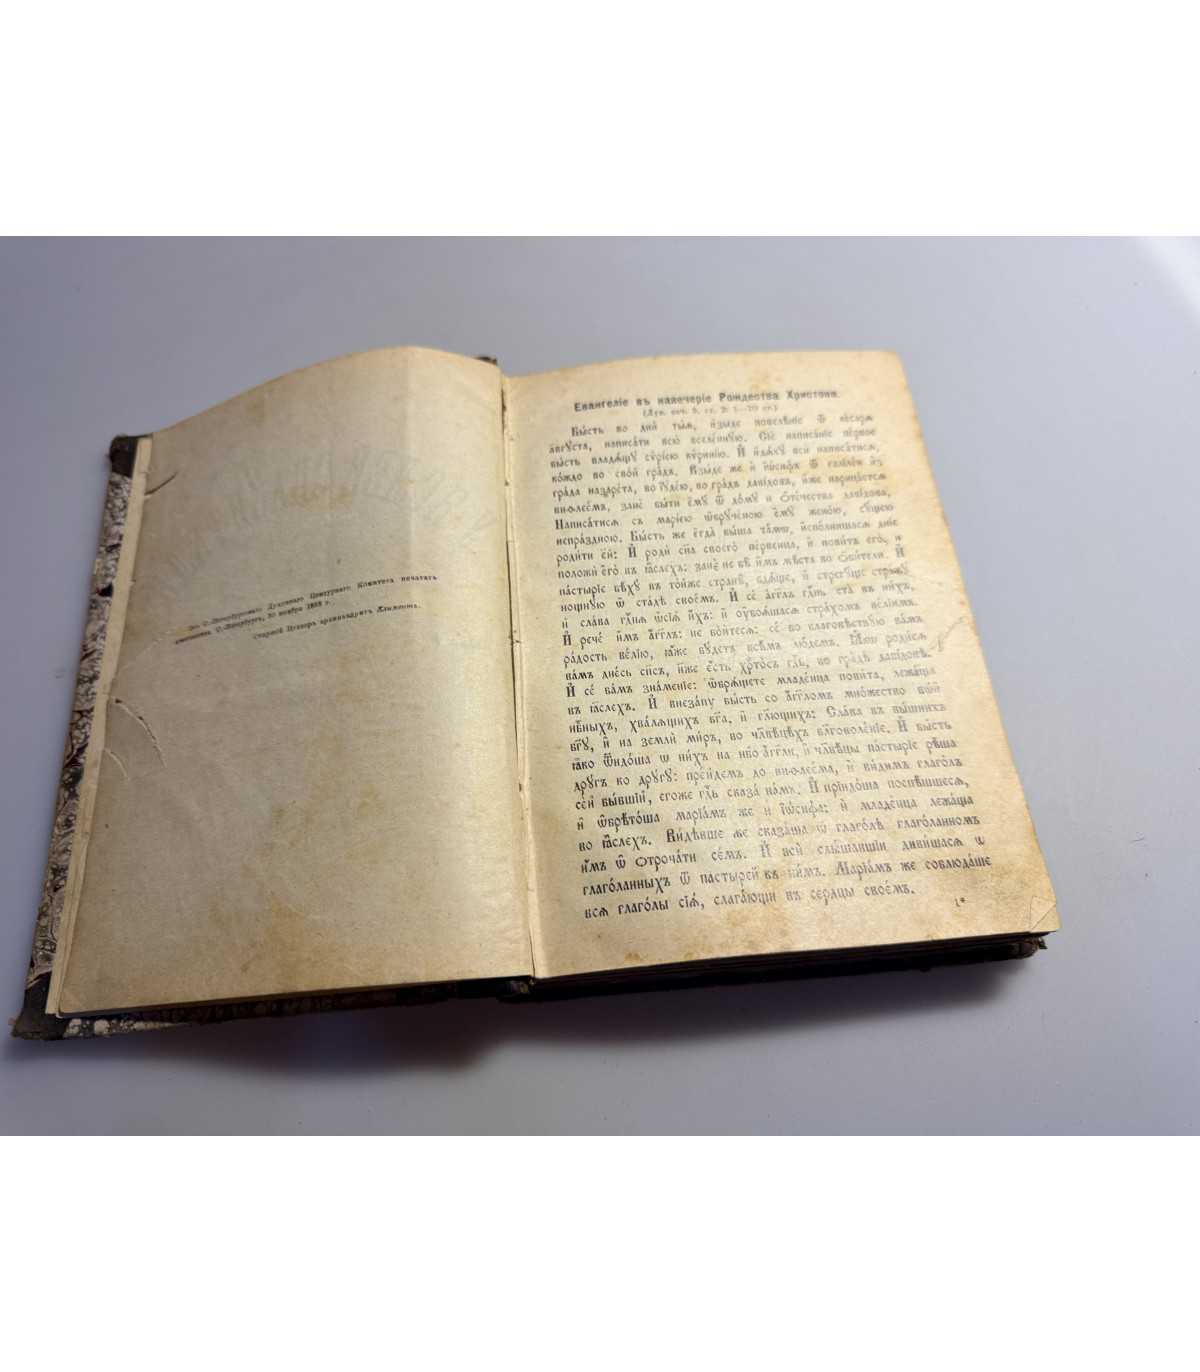 Отъ С.-Петербургскаго Духовнаго Цензурнаго Комитета печатать
С.-Петербургъ, 30 ноября г.
Старшій Цензоръ архимандритъ Климентъ.
Евангеліе въ навечеріе Рождества Христова.
(Лук. зач. 5, гл. 2: 1—20 ст.)
Бы́сть во дни̑ ты̑ѧ, и҆зы́де повелѣ́нїе ѿ ке́сарѧ
а҆́ѵгѹста, написа́ти всю̀ вселе́ннѹю. Сїѐ написа́нїе пе́рвое
бы́сть владѧ́щѹ сѷрі́ею кѷри́нїю. И҆ и҆дѧ́хѹ всѝ написа́тисѧ,
ко́ждо во сво́й гра́дъ. Взы́де же и҆ і҆ѡ́сифъ ѿ галїле́и и҆з̾
гра́да назаре́та, во і҆ѹде́ю, во гра́дъ даві́довъ, и҆́же нарица́етсѧ
виѳлее́мъ, занѐ бы́ти є҆мѹ̀ ѿ до́мѹ и҆ ѻ҆те́чества даві́дова,
Написа́тисѧ съ марі́ею ѡ҆брѹче́ною є҆мѹ̀ жено́ю, сѹ́щею
непра́здною. Бы́сть же є҆гда̀ бы́ша та́мѡ, и҆спо́лнишасѧ дні́е
роди́ти є҆́й: И҆ родѝ сн҃а своего̀ пе́рвенца, и҆ пови́тъ є҆го̀, и҆
положѝ є҆го̀ въ ꙗ҆́слехъ: занѐ не бѣ̀ и҆̀мъ мѣ́ста во ѻ҆би́тели. И҆
па́стырїе бѣ́хѹ въ то́йже странѣ̀, бдѧ́ще, и҆ стрегѹ́ще стра́жѹ
нощнѹ́ю ѡ҆ ста́дѣ свое́мъ. И҆ сѐ а҆́гг҃лъ гд҇нь ста̀ въ ни́хъ,
и҆ сла́ва гд҇нѧ ѡ҆сїѧ̀ и҆̀хъ: и҆ ѹ҆боѧ́шасѧ стра́хомъ ве́лїимъ.
И҆ речѐ и҆̀мъ а҆́гг҃лъ: не бо́йтесѧ: сѐ бо благовѣствѹ́ю ва́мъ
ра́дость ве́лїю, ꙗ҆́же бѹ́детъ всѣ̑мъ лю́демъ. Ꙗ҆́кѡ роди́сѧ
ва́мъ дне́сь сп҃съ, и҆́же є҆́сть хр҇то́съ гд҇ь, во гра́дѣ даві́довѣ.
И҆ сѐ ва́мъ зна́менїе: ѡ҆брѧ́щете младе́нца пови́та, лежа́ща
въ ꙗ҆́слехъ. И҆ внеза́пѹ бы́сть со а҆́гг҃ломъ мно́жество вѡ́й
нб҇ныхъ, хва́лѧщихъ бг҃а, и҆ гл҃ющихъ: Сла́ва въ вы́шнихъ
бг҃ѹ, и҆ на землѝ ми́ръ, во чл҃вѣ́цѣхъ бл҃говоле́нїе. И҆ бы́сть
ꙗ҆́кѡ ѿидо́ша ѡ ни́хъ на нб҃о а҆́гг҃ли, и҆ чл҃вѣ́цы па́стырїе рѣ́ша
дрѹ́гъ ко дрѹ́гѹ: пре́йдемъ до виѳлее́ма, и҆ ви́димъ глаго́лъ
се́й бы́вшїй, є҆го́же гд҇ь сказа̀ на́мъ. И҆ прїидо́ша поспѣ́шшесѧ,
и҆ ѡ҆брѣто́ша марїа́мъ же и҆ і҆ѡ́сифа: и҆ младе́нца лежа́ща
во ꙗ҆́слехъ. Ви́дѣвше же сказа́ша ѡ҆ глаго́лѣ глаго́ланномъ
и҆̀мъ ѡ҆ ѻ҆троча́ти се́мъ. И҆ всѝ слы́шавшїи диви́шасѧ ѡ
глаго́ланныхъ ѿ па́стырей къ ни́мъ. Марїа́мъ же соблюда́ше
всѧ̑ глаго́лы сїѧ̑, слага́ющи въ се́рдцы свое́мъ.
1*